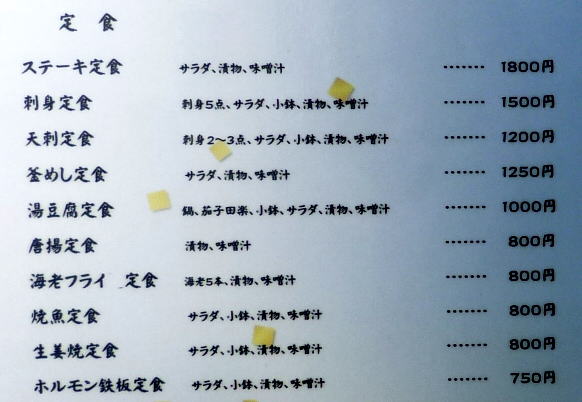 定食
ステーキ定食 サラダ、漬物、味噌汁 ······· 1800円
刺身定食 刺身5点、サラダ、小鉢、漬物、味噌汁 ······· 1500円
天刺定食 刺身2〜3点、サラダ、小鉢、漬物、味噌汁 ······· 1200円
釜めし定食 サラダ、漬物、味噌汁 ······· 1250円
湯豆腐定食 鍋、茄子田楽、小鉢、サラダ、漬物、味噌汁 ······· 1000円
唐揚定食 漬物、味噌汁 ······· 800円
海老フライ 定食 海老5本、漬物、味噌汁 ······· 800円
焼魚定食 サラダ、小鉢、漬物、味噌汁 ······· 800円
生姜焼定食 サラダ、小鉢、漬物、味噌汁 ······· 800円
ホルモン鉄板定食 サラダ、小鉢、漬物、味噌汁 ······· 750円